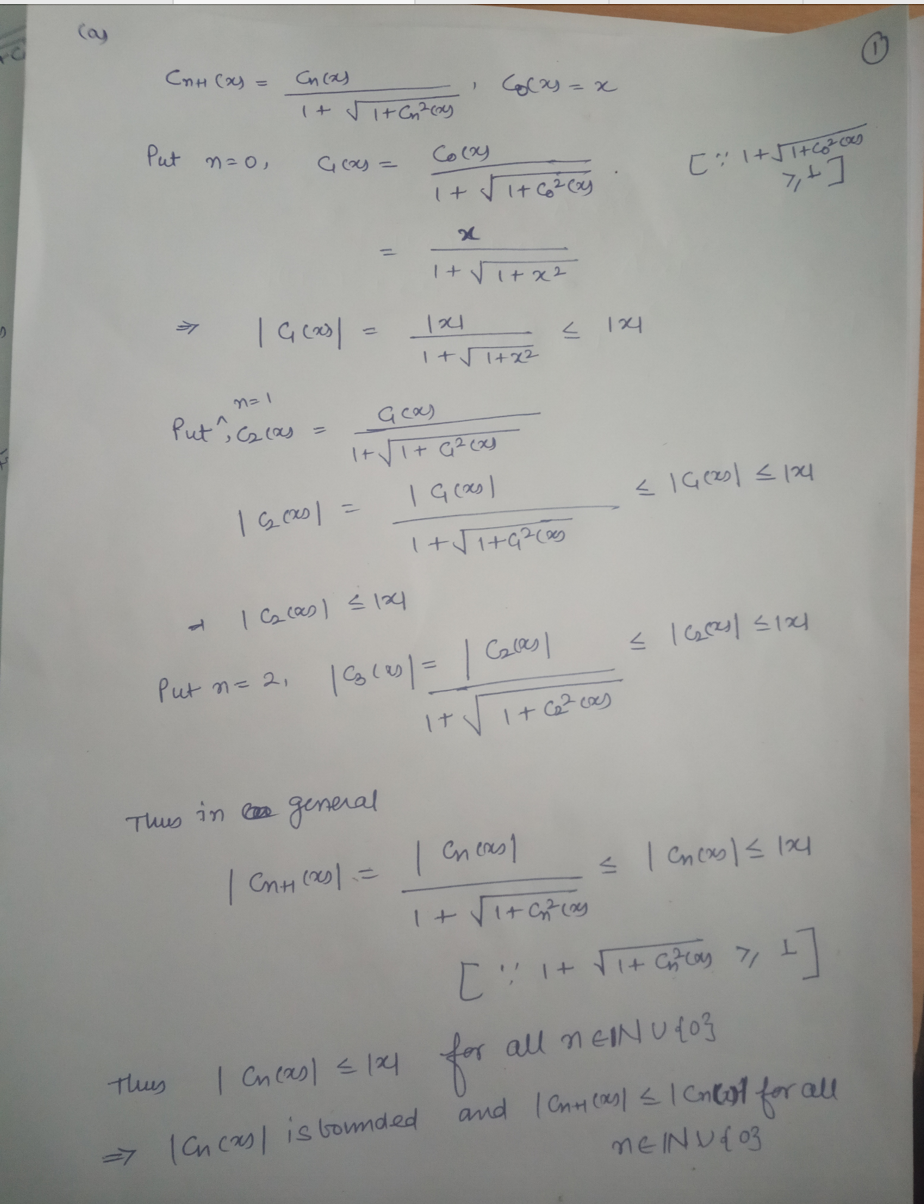 (a)
①
Cn+1(x) = Cn(x) / (1 + √(1 + Cn²(x))) , C0(x) = x
Put n=0, C1(x) = C0(x) / (1 + √(1 + C0²(x))) . [∵ 1 + √(1 + C0²(x)) ≥ 1]
= x / (1 + √(1 + x²))
⇒ |C1(x)| = |x| / (1 + √(1 + x²)) ≤ |x|
Put n=1, C2(x) = C1(x) / (1 + √(1 + C1²(x)))
|C2(x)| = |C1(x)| / (1 + √(1 + C1²(x))) ≤ |C1(x)| ≤ |x|
⇒ |C2(x)| ≤ |x|
Put n = 2, |C3(x)| = |C2(x)| / (1 + √(1 + C2²(x))) ≤ |C2(x)| ≤ |x|
Thus in general
|Cn+1(x)| = |Cn(x)| / (1 + √(1 + Cn²(x))) ≤ |Cn(x)| ≤ |x|
[∵ 1 + √(1 + Cn²(x)) ≥ 1]
Thus |Cn(x)| ≤ |x| for all n∈ℕ∪{0}
⇒ |Cn(x)| is bounded and |Cn+1(x)| ≤ |Cn(x)| for all
n∈ℕ∪{0}